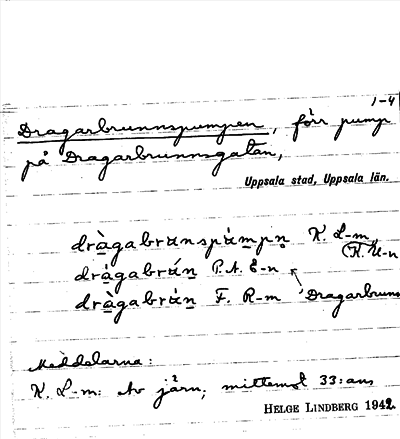 1-4
Dragarbrunnspumpen, förr pump
på Dragarbrunnsgatan,
Uppsala stad, Uppsala län.
dràgabrunspúmpn̥ K. L-m,
(K. U-n
drágabrún P. A. E-n
dràgabrún F. R-m 'Dragarbrunn
Meddelarna:
K. L-m: Av järn; mittemot 33:ans
HELGE LINDBERG 1942.